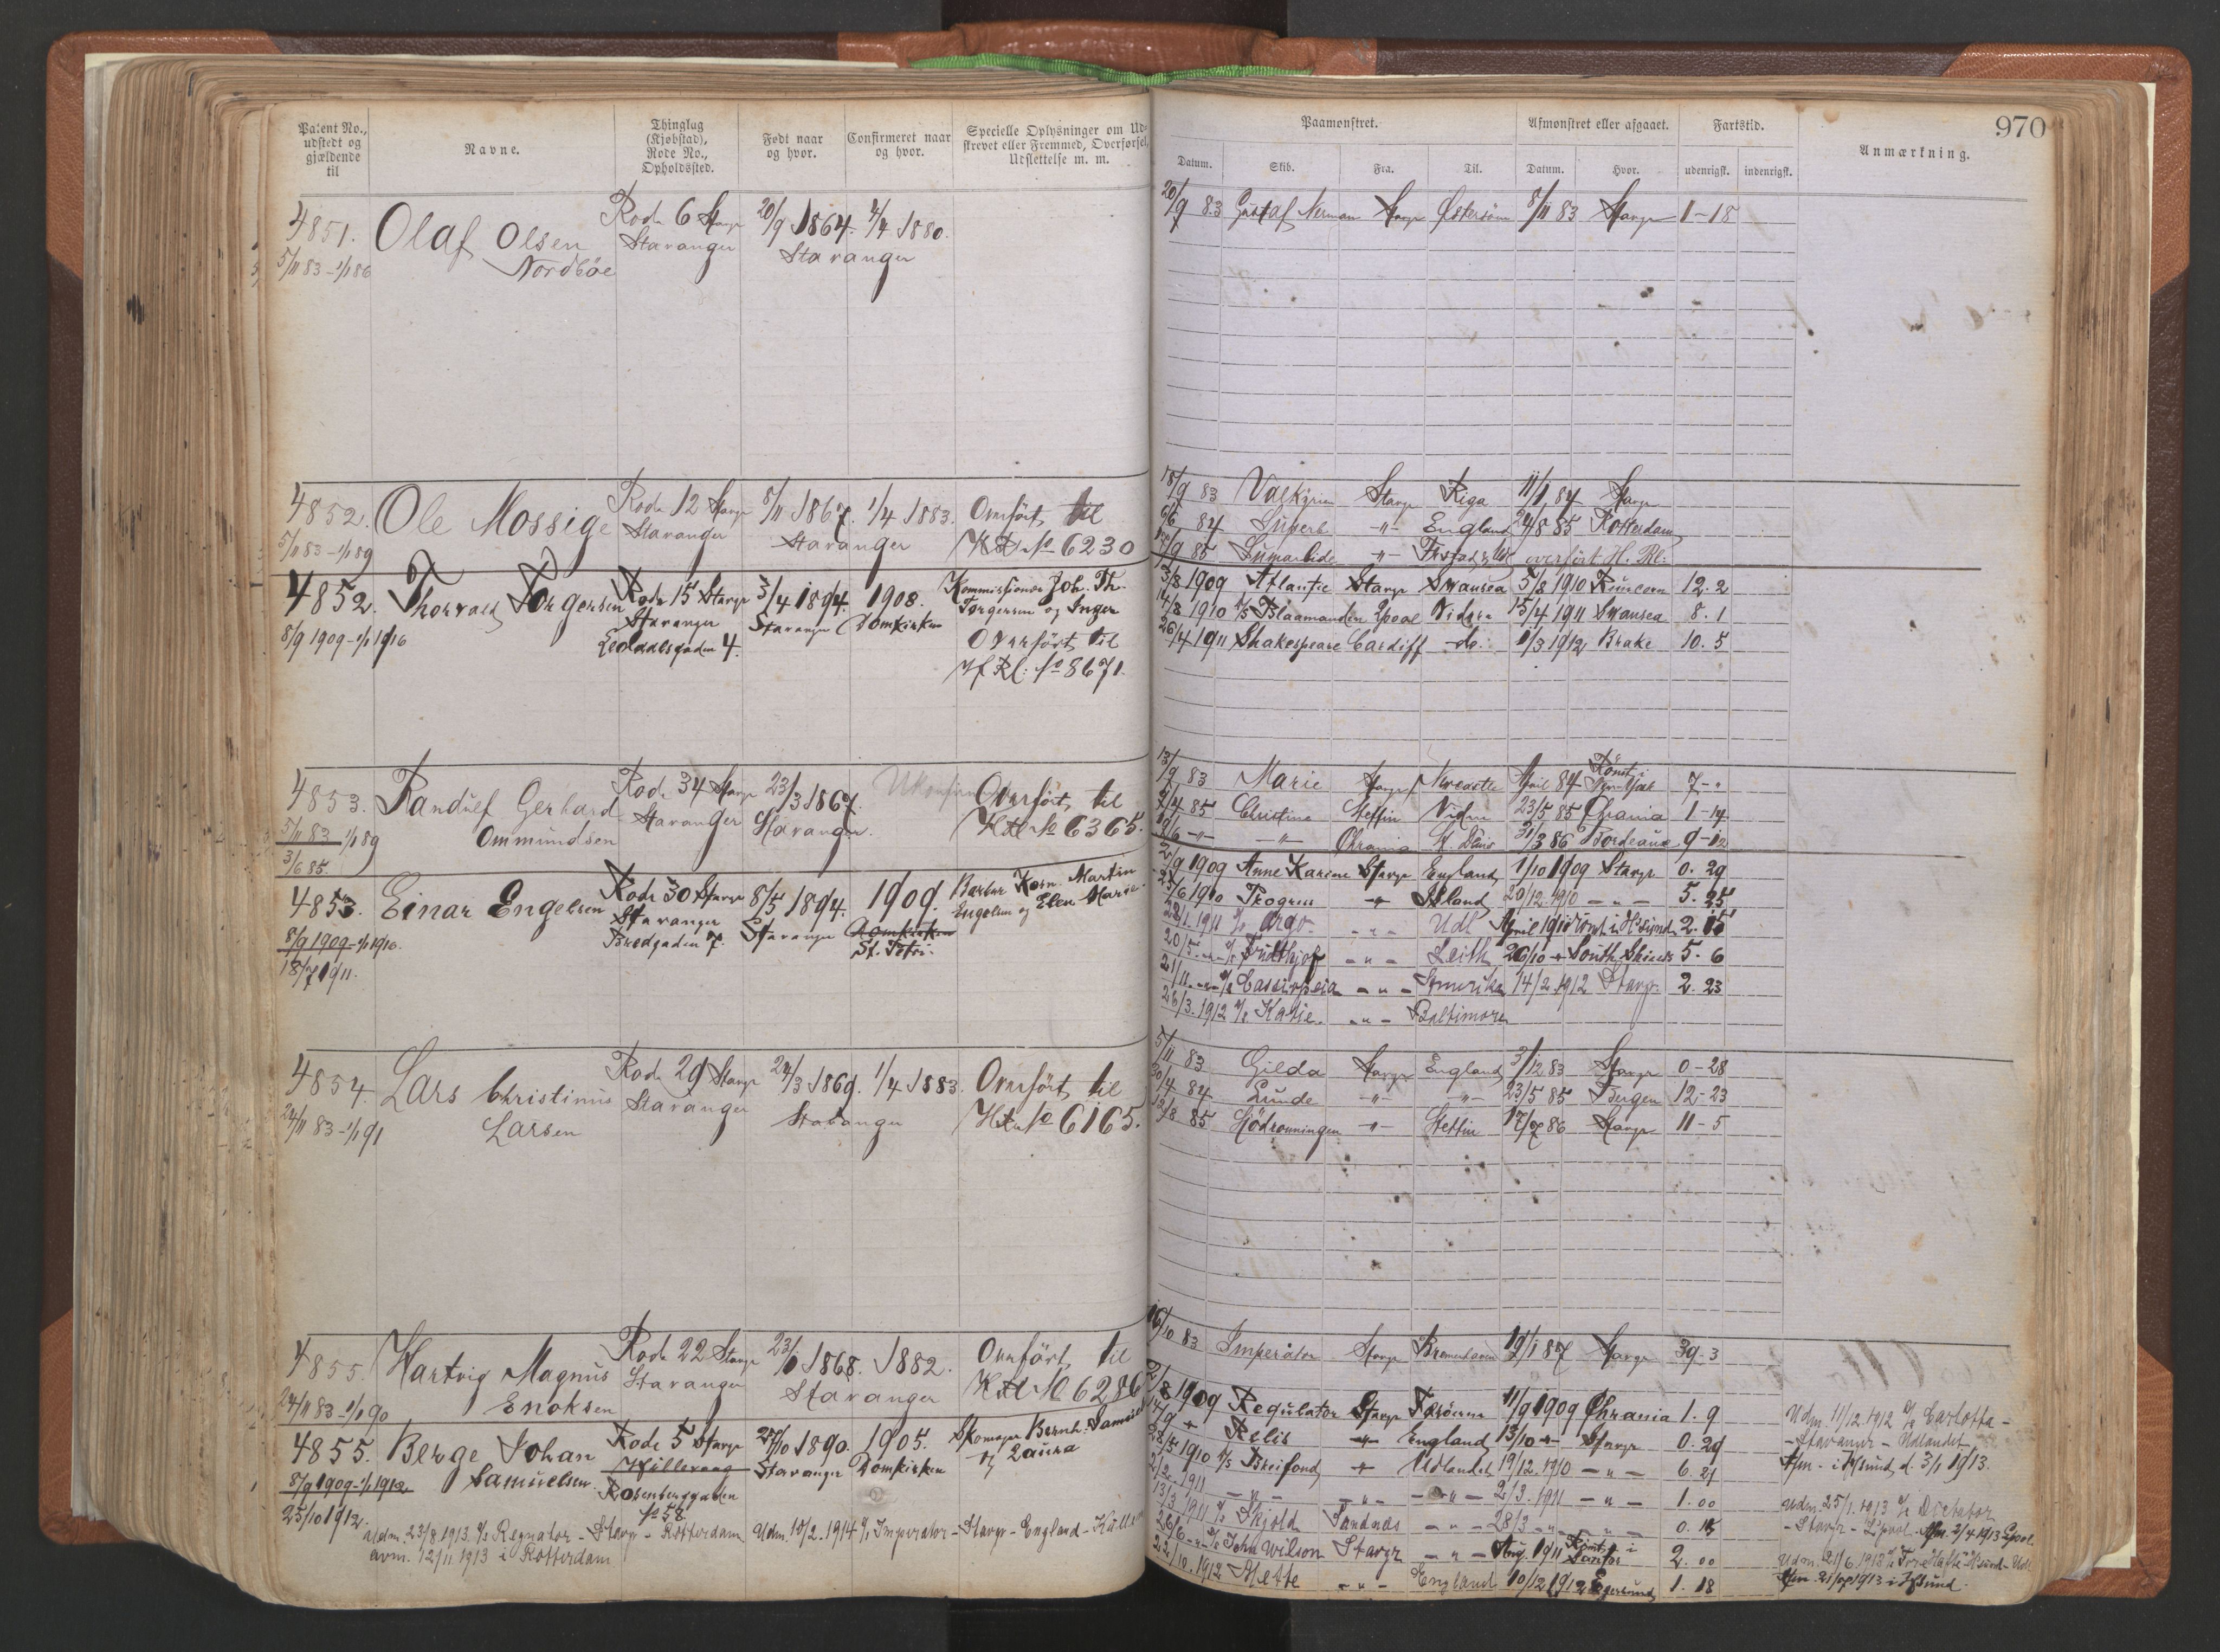 970
Patent No., udstedt og gjældende til
Navne.
Thinglag (Kjøbstad), Rode No., Opholdssted.
Født naar og hvor.
Confirmeret naar og hvor.
Specielle Oplysninger om Udskrevet eller Fremmed, Overførsel, Udslettelse m. m.
Paamønstret.
Afmønstret eller afgaaet.
Fartstid.
Anmærkning.
Datum. Skib. Fra. Til. Datum. Hvor. udenrigsk. indenrigsk.
4851. Olaf Olsen Rode 6 Stavgr 20/9 1864. 4/4 1880.
5/11 83 - 1/1 86 Nordbøe Stavanger Stavanger
20/9 83 Gustaf Nerman Stavgr Østersøen 8/11 83 Stavgr 1-18
4852. Ole Mossige Rode 12 Stavgr 8/11 1867. 1/4 1883. Overført til
5/11 83 - 1/1 89 Stavanger Stavanger No 6230
18/9 83 Valkyrien Stavgr Riga 11/1 84 Stavgr
6/6 84 Superb -"- England 24/8 85 Rotterdam
85 -"- overført H. Rl:
4852. Thorvald Torgersen Rode 15 Stavgr 3/4 1894. 1908. Kommissionær Joh. Th.
Stavanger Stavanger Domkirken Torgersen og Inger
8/9 1909 - 1/1 1916 4. Overført til
H Rl: No 8671.
3/8 1909 Atlantic Stavgr Swansea 5/8 1910 Runcorn 12. 2
14/8 1910 Blaamanden Lpool Videre 15/4 1911 Swansea 8. 1
26/4 1911 Shakespeare Cardiff do. 1/3 1912 Brake 10. 5
4853. Randulf Gerhard Rode 34 Stavgr 23/3 1867. Ukonfirm Overført til
5/11 83 1/1 89 Ommundsen Stavanger Stavanger. No 6365.
3/6 85.
13/9 83 Marie Stavgr Newcastle April 84 7-"
7/4 85 Christine Stettin Viden 23/5 85 Chrania 1-17
-"- -"- Chrania 31/3 86 Bordeaux 9-12
4853. Einar Engelsen Rode 30 Stavgr 8/5 1894. 1909. Barber Korn. Martin
8/9 1909 - 1/1 1916. Stavanger Stavanger Domkirken Engelsen og Elen Marie.
18/7 1911. Bredgaden 7. St. Petri.
2/9 1909 Anne Karine Stavgr England 1/10 1909 Stavgr 0. 29
25/6 1910 Progress -"- Island 20/12 1910 -"- 5. 25
1911 Argo -"- Udl April 1911 2. 15
20/5 -"- Fridthjof -"- Leith 26/10 -"- South Shields 5. 6
21/11 -"- Cassiopeia -"- Amerika 14/2 1912 Stavgr. 2. 23
26/3. 1912 Katie. -"- Baltimore
4854. Lars Christinus Rode 29 Stavgr 24/3 1869. 1/4 1883. Overført til
24/11 83 - 1/1 91 Larsen Stavanger Stavanger No 6165.
5/11 83 Gilda Stavgr England 3/12 83 Stavgr 0-28
30/4 84 Lunde -"- -"- 23/5 85 Bergen 12-23
13/8 85 Sjödronningen -"- Stettin 17/7 86 Stavgr 11-5
4855. Hartvig Magnus Rode 22 Stavgr 1868. 1882. Overført til
24/11 83 - 1/1 90 Enoksen Stavanger Stavanger No 6286
16/10 83 Imperator Stavgr Bremerhaven 19/1 87 Stavgr 39. 3
4855. Berge Johan Rode 5 Stavgr 27/10 1890. 1905. Skomager Bernh. Samuel
8/9 1909 - 1/1 1912 Samuelsen. Hillevaag Stavanger Domkirken og Laura
25/10 1912. Rosenberggaden No 58
Udm. 23/8. 1913. Regnator - Stavgr - Rotterdam Udm. 10/2. 1914 Imperator - Stavgr - England -
avm. 12/11 1913 i Rotterdam
1909 Regulator Stavgr Færöerne 11/9 1909 Chrania 1. 9
14/9 -"- Relis -"- England 13/10 -"- Stavgr 0. 29
28/5 1910 Breifond -"- Udlandet 19/12. 1910 -"- 6. 21
2/2. 1911 -"- -"- -"- 2/3. 1911 -"- 1. 00
13/3 1911 Skjold Sandnæs -"- 28/3 -"- -"- 0. 15
26/6 -"- John Wilson Stavgr -"- Aug. 1911 2. 00
22/10. 1912 Mette -"- England 10/12 1912 Egersund 1. 18
Udm. 11/12. 1912 Carlotta -
- Stavanger - Udlandet
Afm. i d. 3/1 1913.
Udm. 25/1. 1913 Dictator
- Stavgr - Lpool. Afm. 2/4 1913 Lpool.
Udm. 21/6 1913 Tore Hafte
Afm. 21/7 1913 i